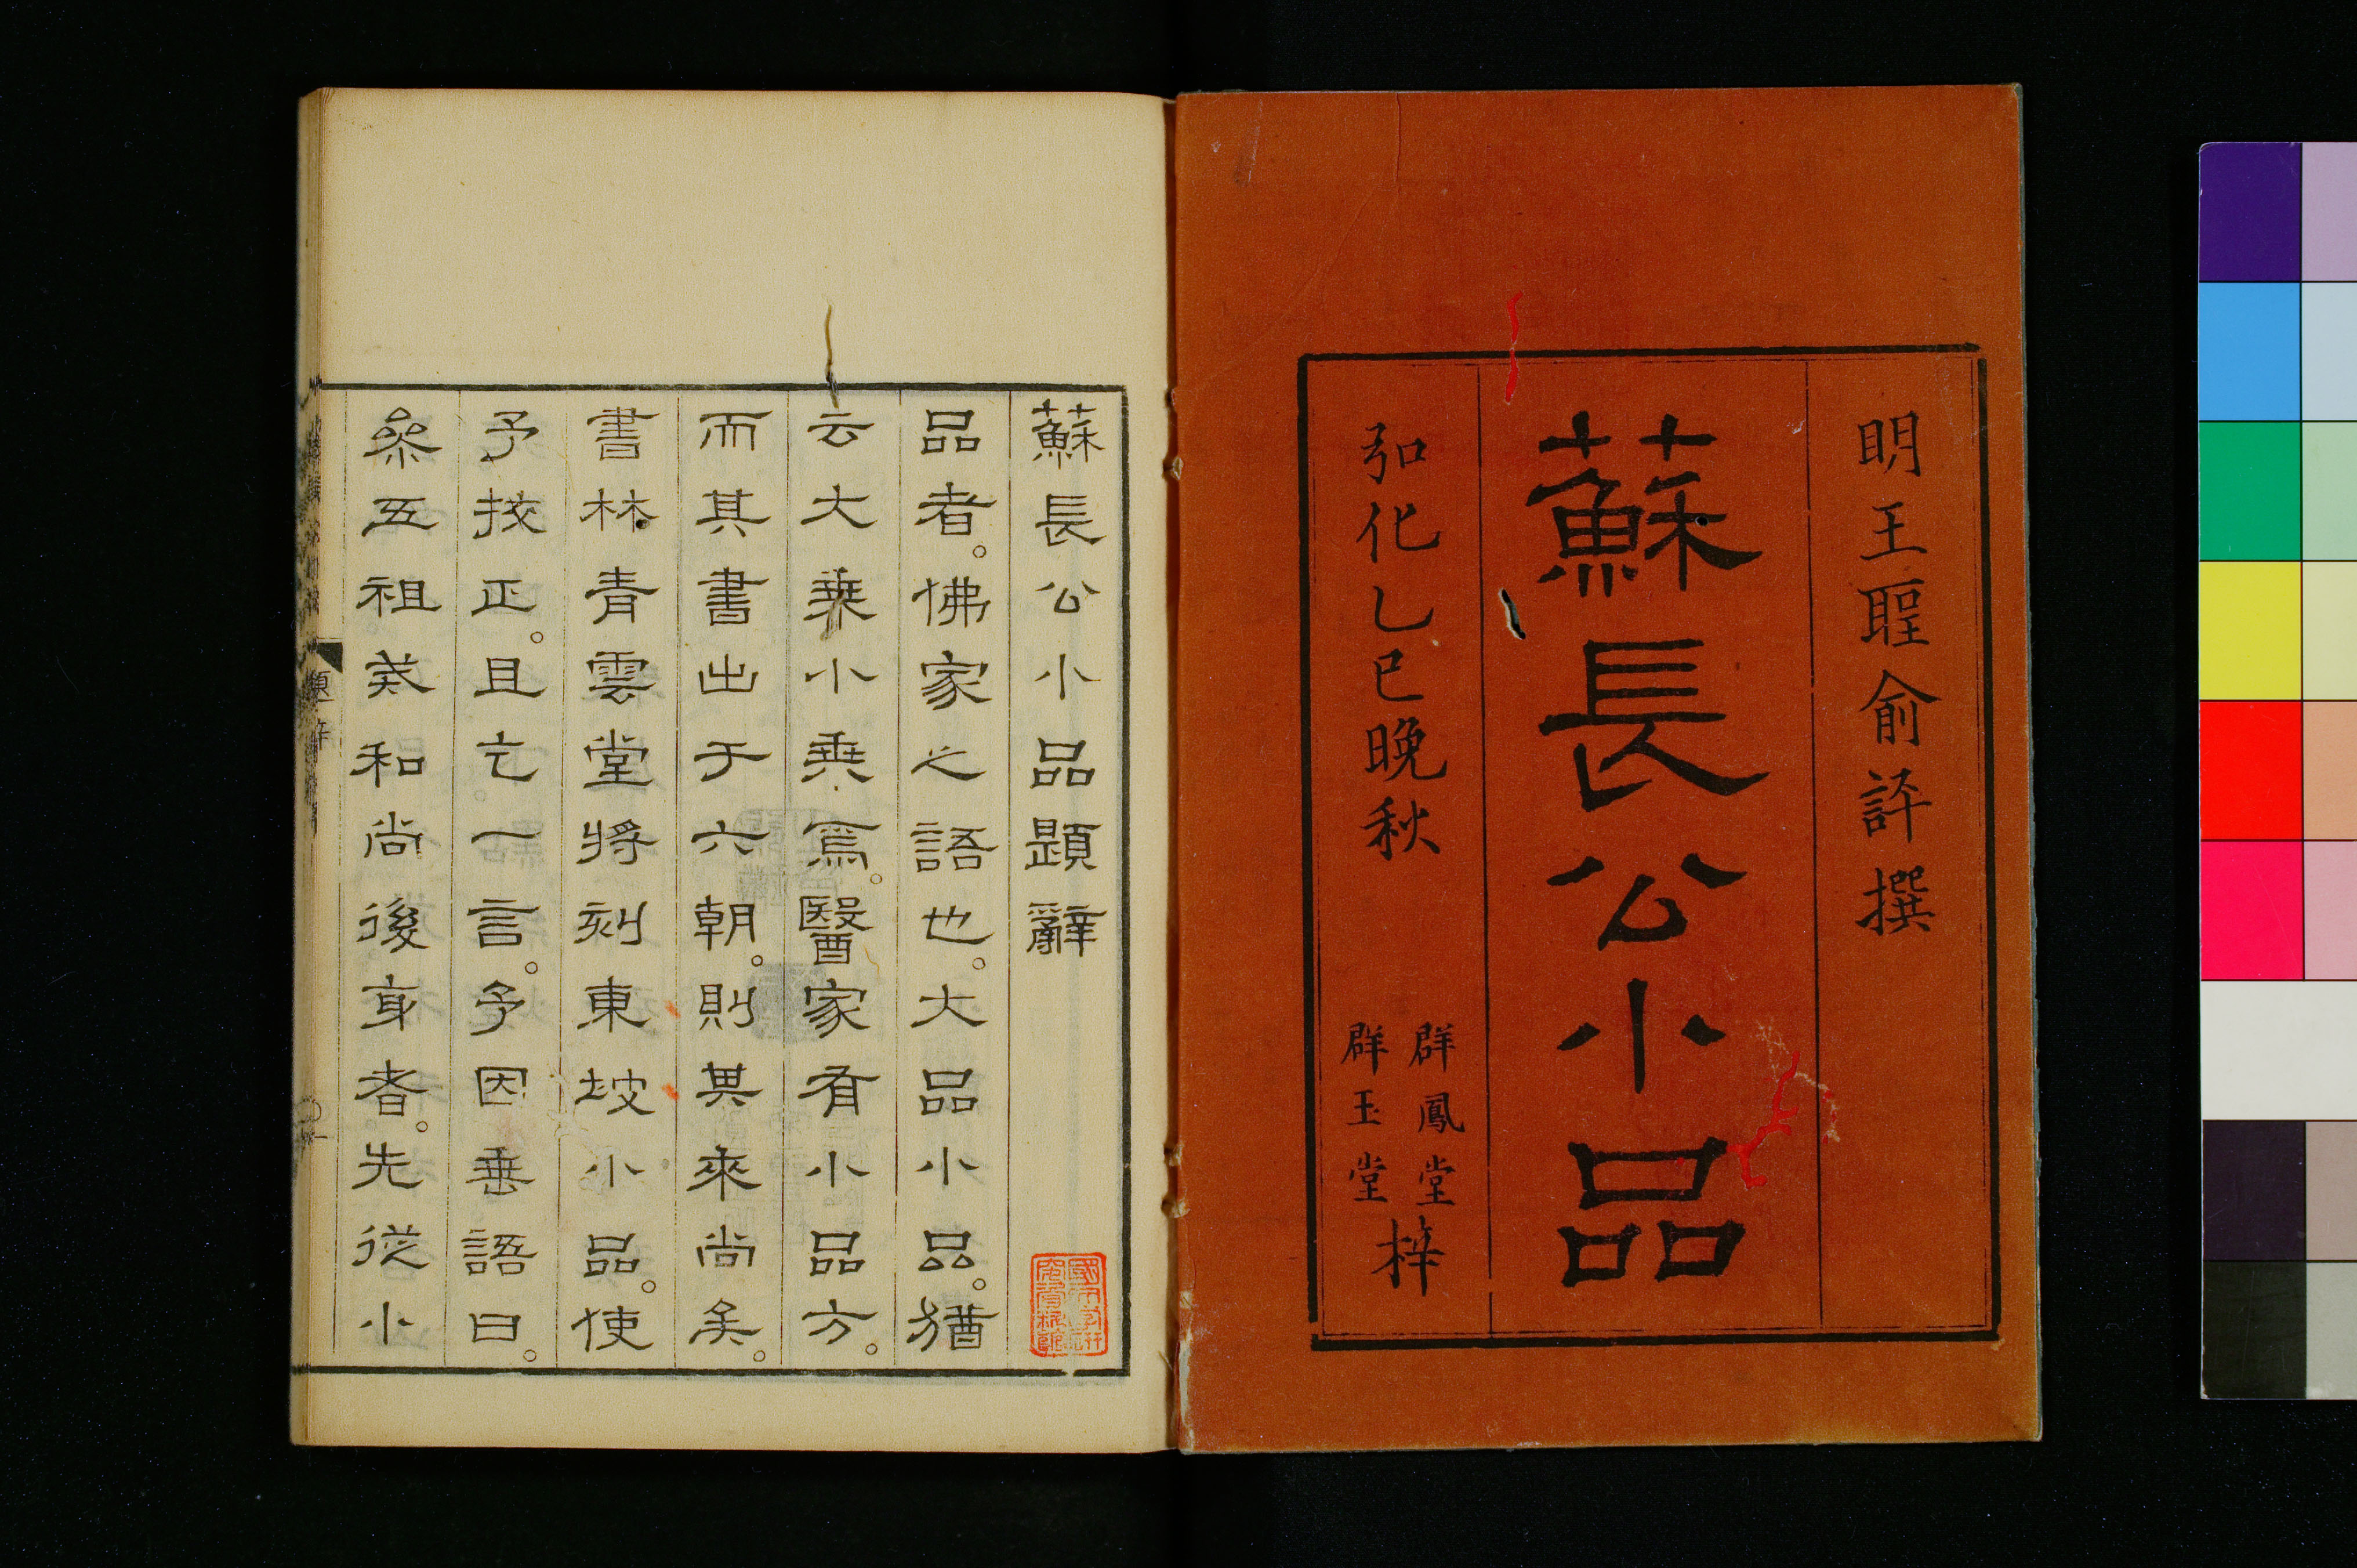 明王聖俞評撰
蘇長公小品
弘化乙巳晚秋
群鳳堂
群玉堂
梓
蘇長公小品題辭
品者。佛家之語也。大品小品。猶
云大乗小乗焉。醫家有小品方。
而其書出于六朝。則其來尚矣。
書林青雲堂將刻東坡小品。使
予挍正。且乞一言。予因垂語曰。
叅五祖戒和尚後身者。先從小
國文學研
究資料館